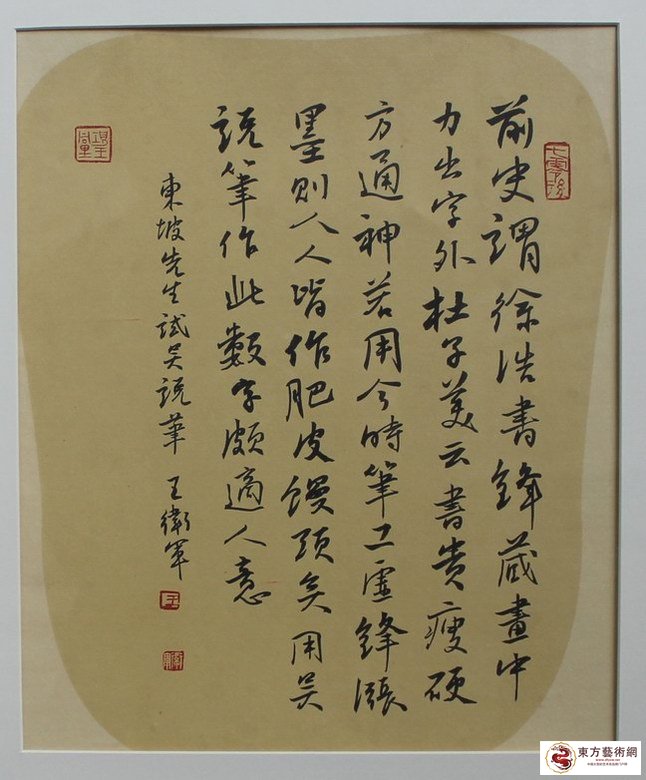 前史謂徐浩書鋒藏畫中
力出字外杜子美云書貴瘦硬
方通神若用今時筆工虛鋒漲
墨則人人皆作肥皮饅頭矣用吴
說筆作此數字頗適人意
東坡先生試吴說筆 王衛軍
東方藝術網